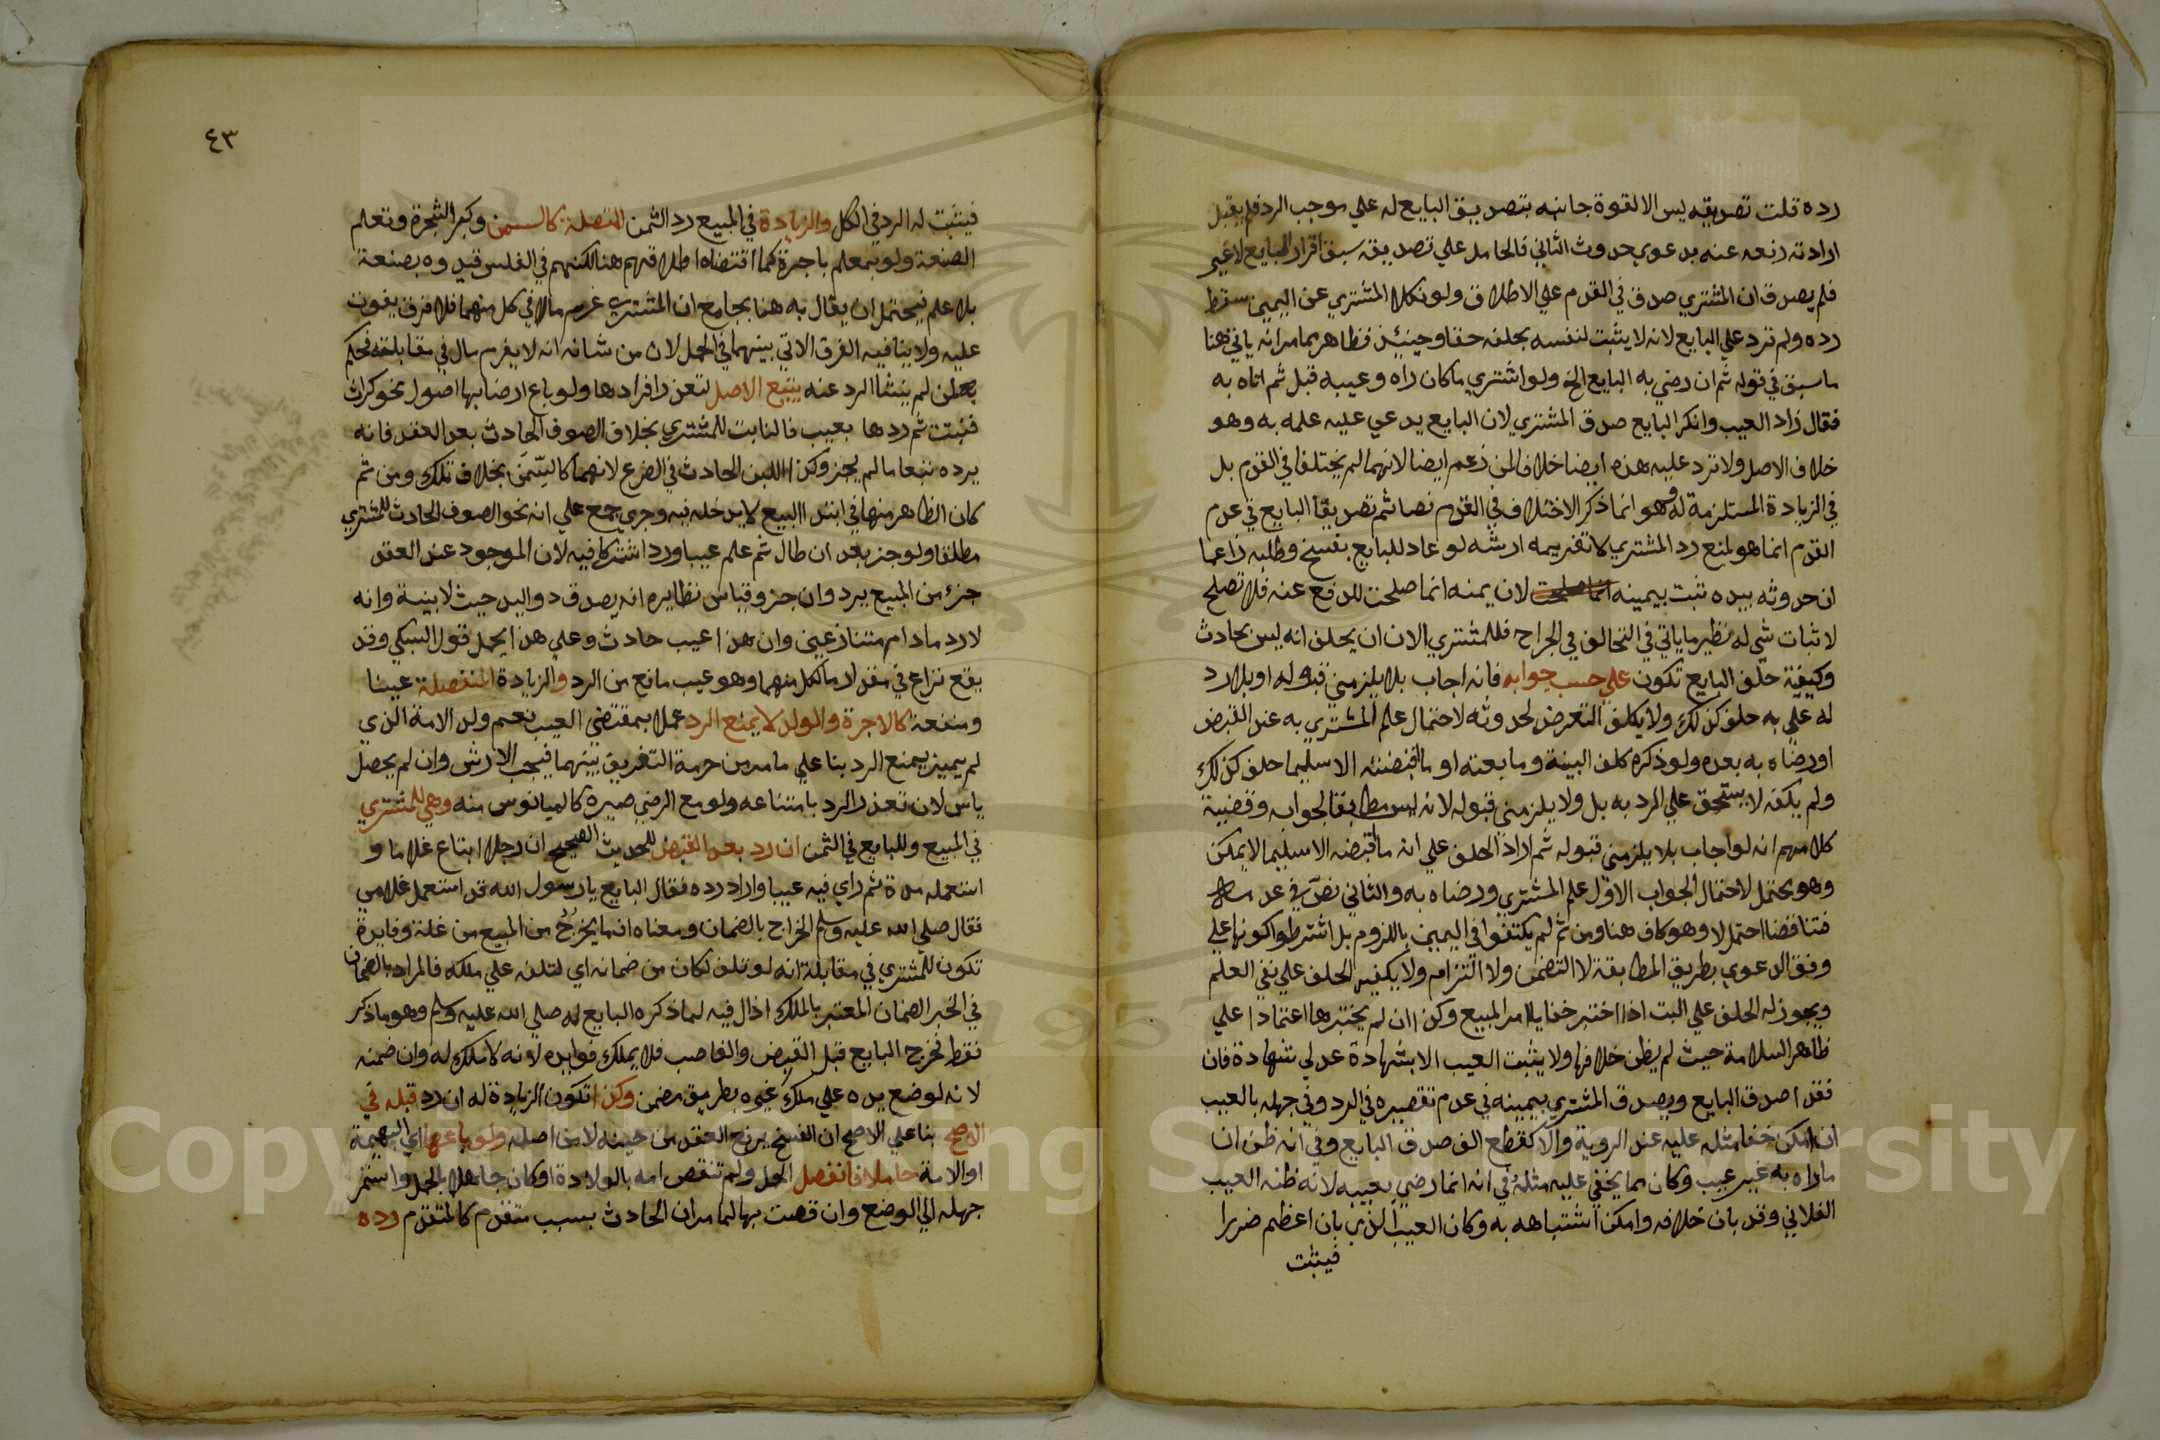 رده قلت تصديقه ليس الا لقوة جانبه بتصديق البايع له علي موجب الرد فلم يقبل
ارادته رفعه عنه بدعوي حدوث الثاني فالحامل علي تصديقه سبق اقرار البايع لا غير
فلم يصدق ان المشتري صدق في القدم علي الاطلاق ولو نكلا المشتري عن اليمين سقط
رده ولم ترد علي البايع لانه لا يثبت لنفسه بحلفه حقا وحينئذ فظاهر مما مر انه ياتي هنا
ما سبق في قوله ثم ان رضي به البايع الخ ولو اشتري ما كان راه وعيبه قبل ثم اتاه به
فقال زاد العيب وانكر البايع صدق المشتري لان البايع يدعي عليه علمه به وهو
خلاف الاصل ولا ترد عليه هذه ايضا خلافا لمن زعم ايضا لانهما لم يختلفا في القدم بل
في الزيادة المستلزمة له وهو انما ذكر الاختلاف في القدم نصا ثم تصديق البايع في عدم
القدم انما هو لمنع رد المشتري لا تغريمه ارشه لو عاد للبايع بفسخ وطلبه زاعما
ان حدوثه بيده ثبت بيمينه لان يمينه انما صلحت للدفع عنه فلا تصلح
لاثبات شي له نظير ما ياتي في التحالف في الجراح فللمشتري الان ان يحلف انه ليس بحادث
وكيفية حلف البايع تكون علي حسب جوابه فانه اجاب بلا يلزمني قبوله او بلا رد
له علي به حلف كذلك ولا يكلف التعرض لحدوثه لاحتمال علم المشتري به عند القبض
او رضاه به بعده ولو ذكره كلف البينة وما بعته او ما اقبضته الا سليما حلف كذلك
ولم يكفه لا يستحق علي الرد به بل ولا يلزمني قبوله لانه ليس مطابقا لجوابه وقضية
كلامهم انه لو اجاب بلا يلزمني قبوله ثم اراد الحلف علي انه ما اقبضه الا سليما لا يمكن
وهو محتمل لاحتمال الجواب الاول علم المشتري ورضاه به والثاني نص في عدمه
فتناقضا احتمالا وهو كاف هنا ومن ثم لم يكتفوا في اليمين باللزوم بل اشترطوا كونها علي
وفق الدعوي بطريق المطابقة لا التضمن ولا التزام ولا يكفيه الحلف علي نفي العلم
ويجوز له الحلف علي البت اذا اختبر خفايا امر المبيع وكذا ان لم يختبرها اعتمادا علي
ظاهر السلامة حيث لم يظن خلافها ولا يثبت العيب الا بشهادة عدلي شهادة فان
فقدا صدق البايع ويصدق المشتري بيمينه في عدم تقصيره في الرد وفي جهله بالعيب
ان امكن خفا مثله عليه عند الروية والا كقطع انف صدق البايع وفي انه ظن ان
ما راه به غير عيب وكان مما يخفي عليه مثله في انه انما رضي بعيبه لانه ظنه العيب
الفلاني وقد بان خلافه وامكن اشتباهه به وكان العيب الذي بان اعظم ضررا
فيثبت
٤٣
فيثبت له الرد في الكل والزيادة في المبيع رد الثمن المتصلة كالسمن وكبر الشجرة وتعلم
الصنعة ولو بمعلم باجرة كما اقتضاه اطلاقهم هنا لكنهم في الفلس قيدوه بصنعة
بلا علم فيحتمل ان يقال به هنا بجامع ان المشتري غرم مالا في كل منهما فلا فرق يفوت
عليه ولا ينافيه الفرق الاتي بينهما في الحمل لان من شانه انه لا يغرم مال في مقابلته فحكم
بمن لم ينشا الرد عنه يتبع الاصل لتعذر افرادها ولو باع ارضا بها اصول نحو كراث
فنبتت ثم ردها بعيب فالنابت للمشتري بخلاف الصوف الحادث بعد العقد فانه
يرده تبعا ما لم يجز وكذا اللبن الحادث في الضرع لانهما كالسمن بخلاف تلك ومن ثم
كان الظاهر منها في ابتدا البيع لا يدخله فيه وجري جمع علي انه نحو الصوف الحادث للمشتري
مطلقا ولو جز بعد ان طال ثم علم عيبا ورد اشتركا فيه لان الموجود عند العقد
جزء من المبيع يرد وان جز وقياس نظايره انه يصدق ذو اليد حيث لا بينة وانه
لا رد مادام متنازعين وان هذا عيب حادث وعلي هذا يحمل قول السبكي وقد
يقع نزاع في مقدار ما لكل منهما وهو عيب مانع من الرد والزيادة المنفصلة عينا
ومنفعة كالاجرة والولد لا يمنع الرد عملا بمقتضي العيب نعم ولد الامة الذي
لم يميز يمنع الرد بنا علي ما مر من حرمة التفريق بينهما فيجب الارش وان لم يحصل
ياس لان تعذر الرد بامتناعه ولو مع الرضي صيره كالميانوس منه وهي للمشتري
في المبيع وللبايع في الثمن ان رد بعد القبض للحديث الصحيح ان رجلا ابتاع غلاما و
استعمله مدة ثم راي فيه عيبا واراد رده فقال البايع يا رسول الله قد استعمل غلامي
فقال صلي الله عليه وسلم الخراج بالضمان ومعناه ان ما يخرج من المبيع من غلة وفايدة
تكون للمشتري في مقابلة انه لو تلف لكان من ضمانه اي لتلفه علي ملكه فالمراد بالضمان
في الخبر الضمان المعتبر بالملك اذ ال فيه لما ذكره البايع له صلي الله عليه وسلم وهو ما ذكر
فقط فخرج البايع قبل القبض والغاصب فلا يملك فوايده لانه لا ملك له وان ضمنه
لانه لوضع يده علي ملك غيره بطريق مضمن وكذا تكون الزيادة له ان رد قبله في
الاصح بنا علي الاصح ان الفسخ يرفع العقد من حينه لا من اصله ولو باعها اي البهيمة
او الامة حاملا فانفصل الحمل ولم تنقص امه بالولادة او كان جاهلا بالحمل واستمر
جهله الي الوضع وان نقصت بها لما مر ان الحادث بسبب متقدم كالمتقدم رده